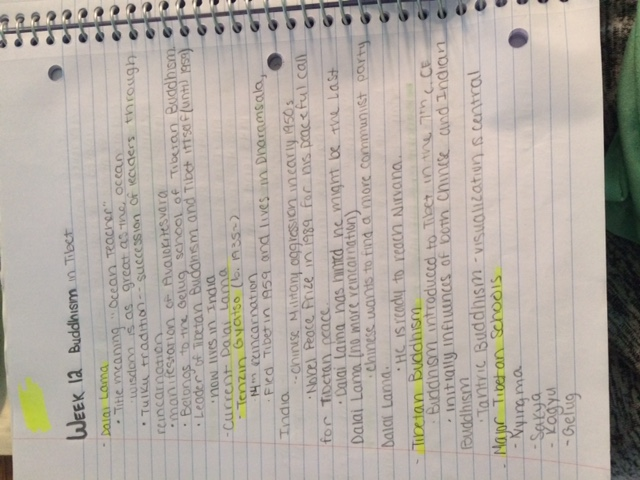 WEEK 12 Buddhism in Tibet
- Dalai Lama
• Title meaning "Ocean Teacher"
- wisdom is as great as the ocean
• Tulku tradition - succession of leaders through
reincarnation
• manifestation of Avalokitesvara
• Belongs to the Gelug school of Tibetan Buddhism
• Leader of Tibetan Buddhism and Tibet itself (until 1959)
• now lives in India
- Current Dalai Lama
- Tenzin Gyatso (b. 1935-)
• 14th reincarnation
• Fled Tibet in 1959 and lives in Dharamsala,
India
- Chinese Military aggression in early 1950s
• Nobel Peace Prize in 1989 for his peaceful call
for Tibetan peace.
• Dalai Lama has hinted he might be the last
Dalai Lama (no more reincarnation)
- Chinese wants to find a more communist party
Dalai Lama.
• He is ready to reach Nirvana.
- Tibetan Buddhism
• Buddhism introduced to Tibet in the 7th c. CE
• Initially influences of both Chinese and Indian
Buddhism
- Tantric Buddhism - visualization is central
- Major Tibetan Schools
- Nyingma
- Sakya
- Kagyu
- Gelug